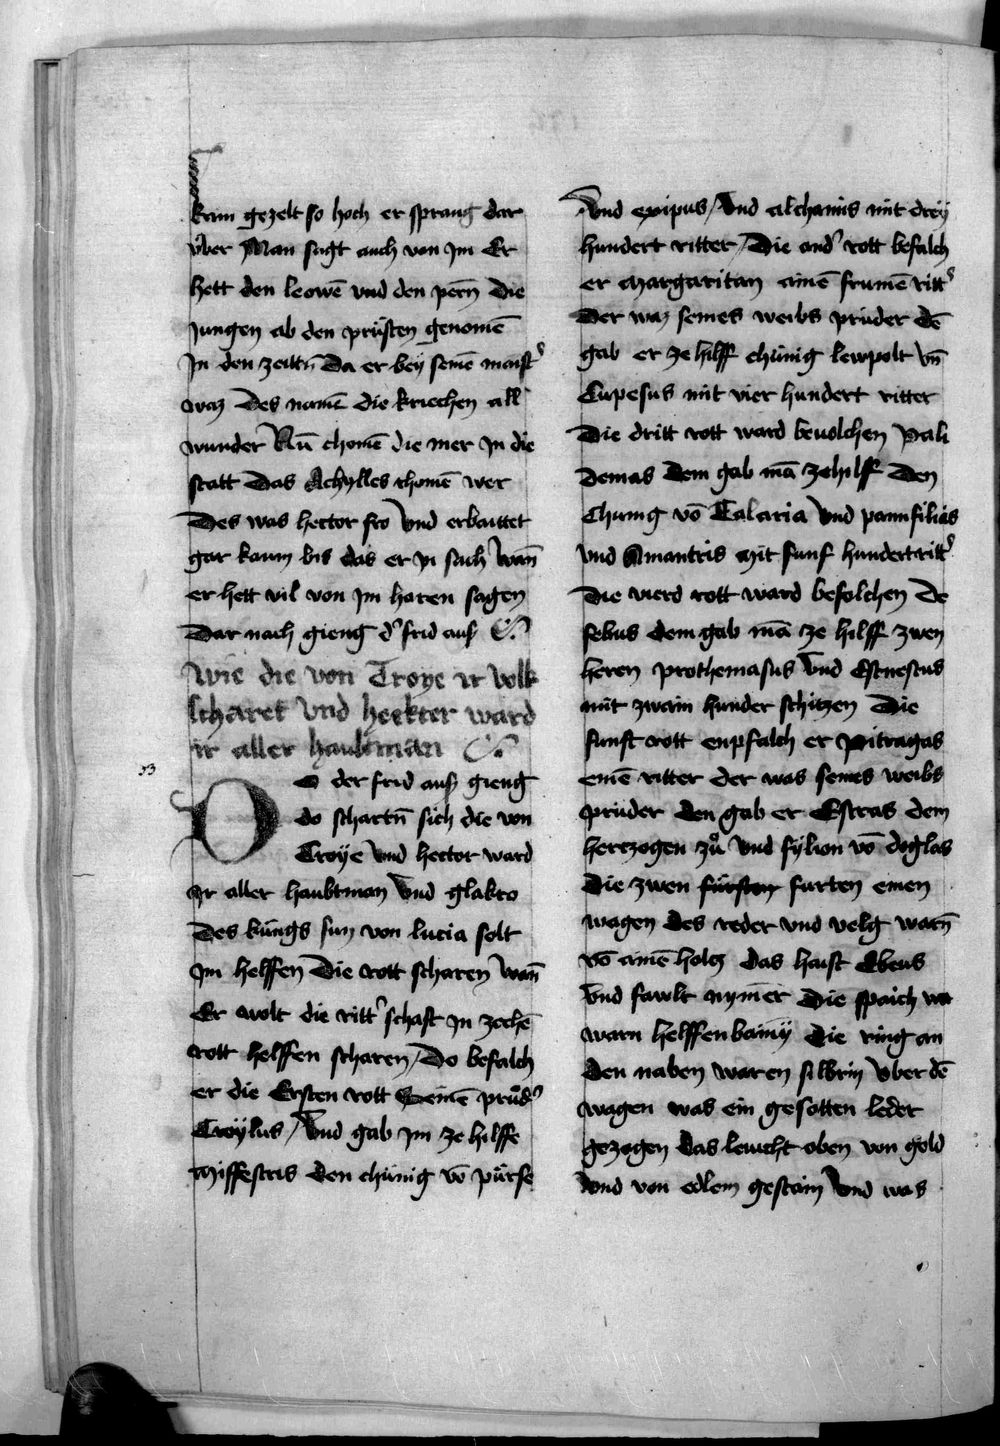 kain gezelt so hoch er sprang dar
vber Man sagt auch von Im Er
hett den leowē vnd den pern̄ Die
Jungen ab den prüsten genomē
In den zeittn̄ Da er bey seinē maist᾽
waz Des namē die kriechen all
wunder Nū chomē die mer In die
statt Das Achylles chomē wer
Des was hector fro Vnd erbaittet
gar kaum bis das er In sach Wan̄
er hett vil von Im horen sagen
Dar nach gieng d᾽ frid aus
Wie die von Troye ir volk
scharet vnd heckter ward
ir aller haubtman
33
DO der frid aus gieng
do schartn̄ sich die von
Troye Vnd hector ward
Ir aller haubtman Vnd glakco
Des küngs sun von lucia solt
Im helffen Die rott scharen Wan̄
Er wolt die ritt᾽schaft In zechē
rott helffen scharen / Do befalch
er die Ersten rott Seinē prüd᾽
Troylus / Vnd gab Im ze hilffe
Miffestris den chünig vō pürse
Vnd expipus / Vnd alchamis mit drey
hundert ritter / Die and᾽ rott befalch
er margaritan ainē frumē ritt᾽
Der waz seines weibs prüder dē
gab er ze hilff chünig lewpolt vn̄
Cupesus mit vier hundert ritter
Die dritt rott ward beuolchen Pali
demas Dem gab mā ze hilff Den
Chunig vō Calaria Vnd pannfilias
Vnd Amantris mit funf hundert ritt᾽
Die vierd rott ward befolchen De
febus dem gab mā ze hilff zwen
heren prothemasus Vnd Estuestus
mit zwain hunder schützen Die
funft rott enpfalch er pitragas
einē ritter der was seines weibs
prüder den gab er Estras dem
hertzogen zu Vnd fylion vō doglas
Die zwen fürsten furten einen
wagen des reder vnd velg warn̄
vō ainē holcz das haist Ebeus
Vnd fawlt nymēr Die spaich wa
warn helffenbainÿ Die ring an
Den naben waren silbrin Vber dē
wagen was ein gesotten leder
gezogen das leucht oben von gold
Vnd von edlem gestain Vnd was